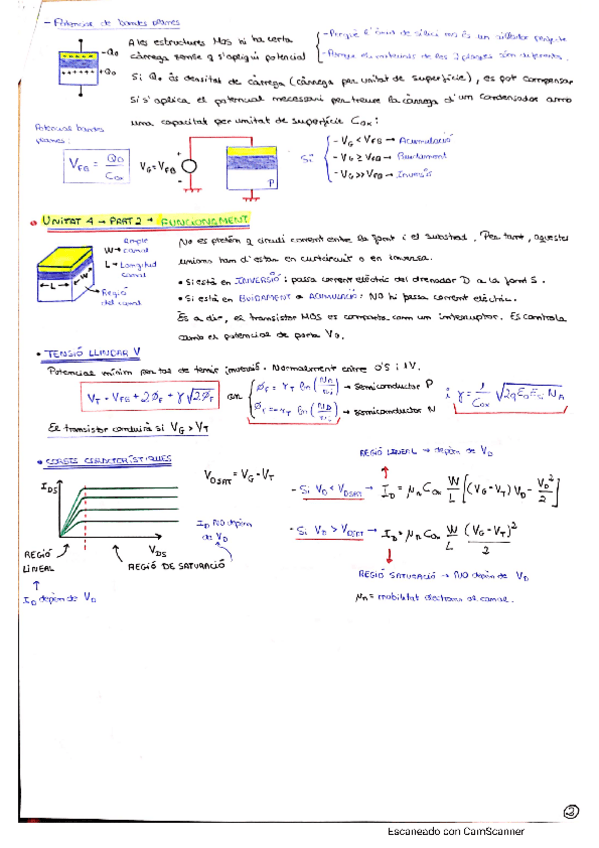 - Potencial de bandes planes
A les estructures MOS hi ha certa càrrega sense q s'apliqui potencial
- Perquè l'òxid de silici no és un aïllador perfecte
- Perquè els materials de les 2 plaques són diferents.
-Q₀
+Q₀
Si Q₀ és densitat de càrrega (càrrega per unitat de superfície), es pot compensar
si s'aplica el potencial necessari per treure la càrrega d'un condensador amb
una capacitat per unitat de superfície Cox:
Potencial bandes planes:
V_FB = Q₀ / Cox
V_G = V_FB
+
-
P
Si
- V_G < V_FB → Acumulació
- V_G ≥ V_FB → Buidament
- V_G >> V_FB → Inversió
UNITAT 4 → PART 2 → FUNCIONAMENT
W → Ample canal
L → Longitud canal
← L →
W
Regió del canal
No es pretén q circuli corrent entre la font i el substrat. Per tant, aquestes
unions han d'estar en curtcircuit o en inversa.
• Si està en INVERSIÓ: passa corrent elèctric del drenador D a la font S.
• Si està en BUIDAMENT o ACUMULACIÓ: NO hi passa corrent elèctric.
És a dir, el transistor MOS es comporta com un interruptor. Es controla
amb el potencial de porta V_G.
• TENSIÓ LLINDAR V
Potencial mínim per tal de tenir inversió. Normalment entre 0'5 i 1V.
V_T = V_FB + 2ϕ_F + γ√2ϕ_F
on
ϕ_F = V_T ln(N_A/n_i) → semiconductor P
ϕ_F = -V_T ln(N_D/n_i) → semiconductor N
i γ = 1/Cox √2qε₀ε_si N_A
El transistor conduirà si V_G > V_T
• CORBES CARACTERÍSTIQUES
I_DS
V_DS
REGIÓ LINEAL
↑
I_D depèn de V_D
REGIÓ DE SATURACIÓ
I_D NO depèn de V_D
V_DSAT = V_G - V_T
REGIÓ LINEAL → depèn de V_D
- Si V_D < V_DSAT → I_D = μ_n Cox W/L [(V_G - V_T) V_D - V_D²/2]
- Si V_D > V_DSAT → I_D = μ_n Cox W/L (V_G - V_T)²/2
REGIÓ SATURACIÓ → NO depèn de V_D
μ_n = mobilitat electrons al canal.
2
Escaneado con CamScanner